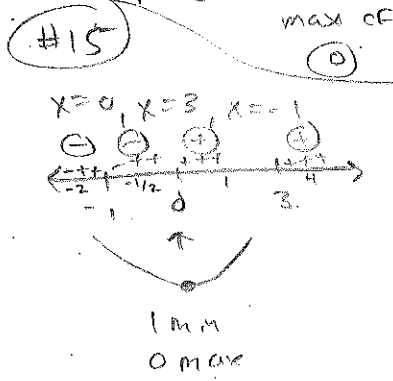 max of
#15
0
x=0, x=3, x=-1
- - + +
-++ -++ +++ ++++
-2 -1/2 1 4
-1 0 3
1 min
0 max